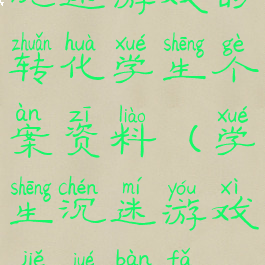 迷游戏的
zhuǎn huà xué shēng gè
转化学生个
àn zī liào xué
案资料（学
shēng chén mí yóu xì
生沉迷游戏
jiě jué bàn fǎ